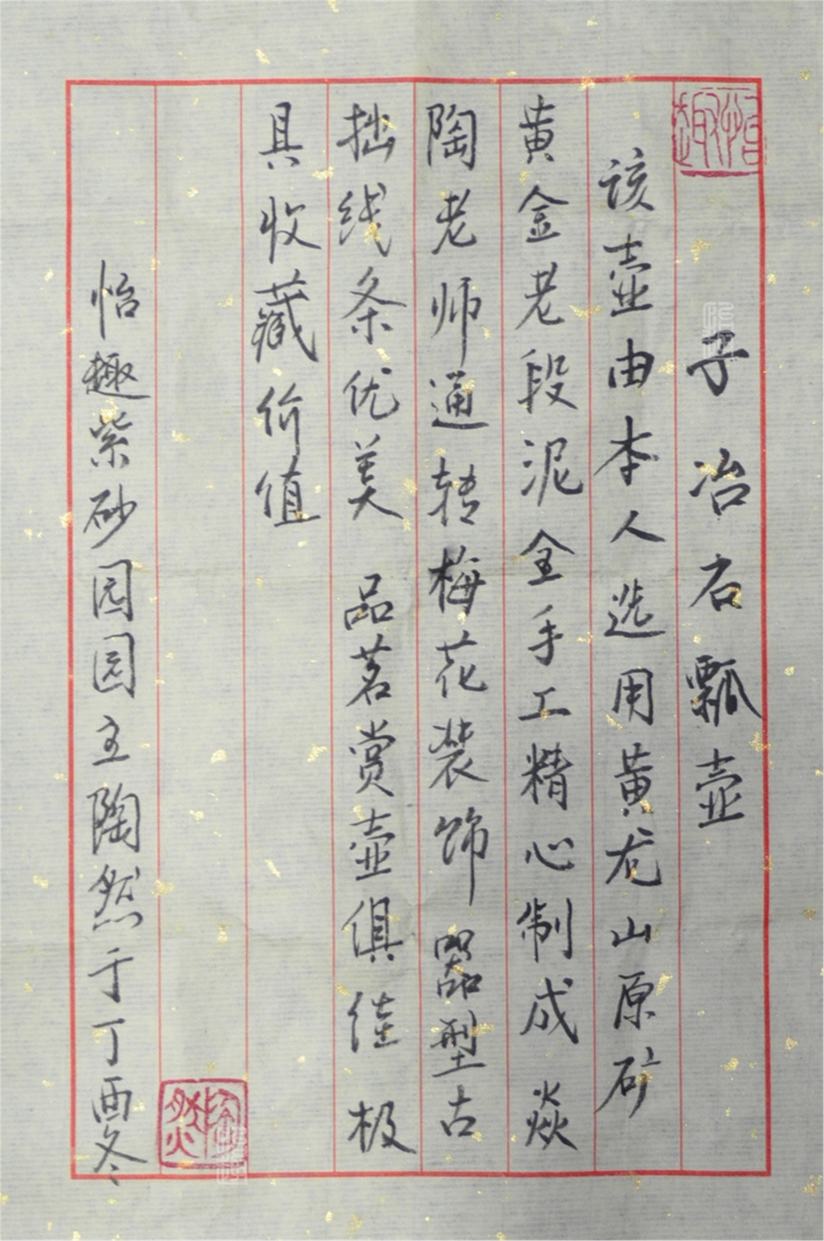 怡趣
子冶石瓢壶
该壶由本人选用黄龙山原矿
黄金老段泥全手工精心制成 焱
陶老师通转梅花装饰 器型古
拙线条优美 品茗赏壶俱佳 极
具收藏价值
怡趣紫砂园园主陶然于丁酉冬